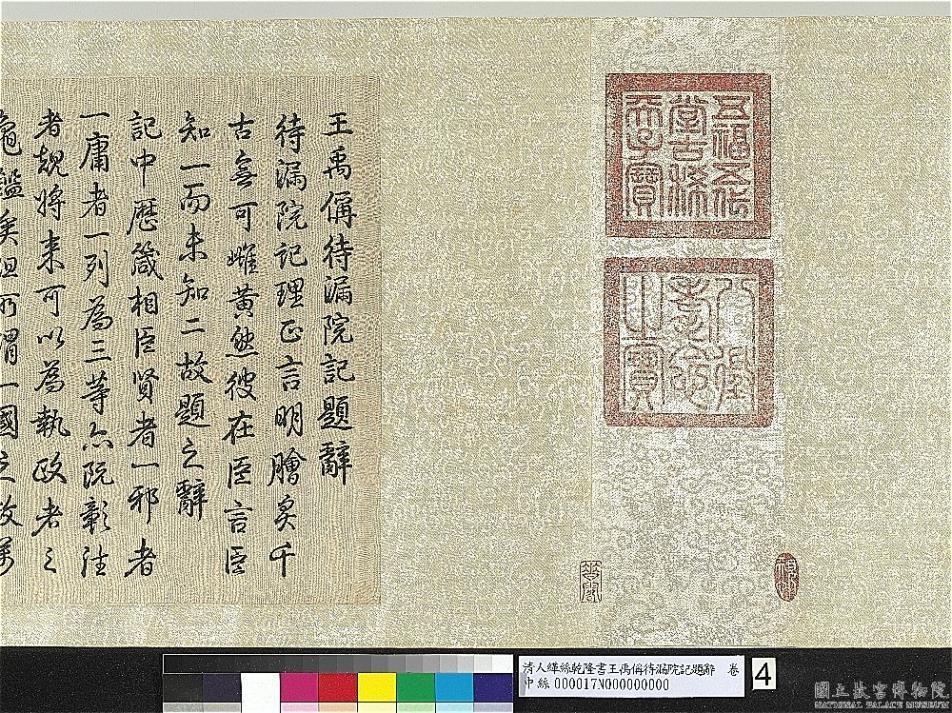 五福五代
堂古稀
天子寶
八徵
耄念
之寶
王禹偁待漏院記題辭
待漏院記理正言明膾炙千
古無可雌黃然彼在臣言臣
知一而未知二故題之辭
記中歷箴相臣賢者一邪者
一庸者一列為三等亦既彰往
者覘將来可以為執政者之
龜鑑矣但所謂一國之政萬
清人緙絲乾隆書王禹偁待漏院記題辭 卷
中絲000017N000000000
4
國立故宮博物院
NATIONAL PALACE MUSEUM